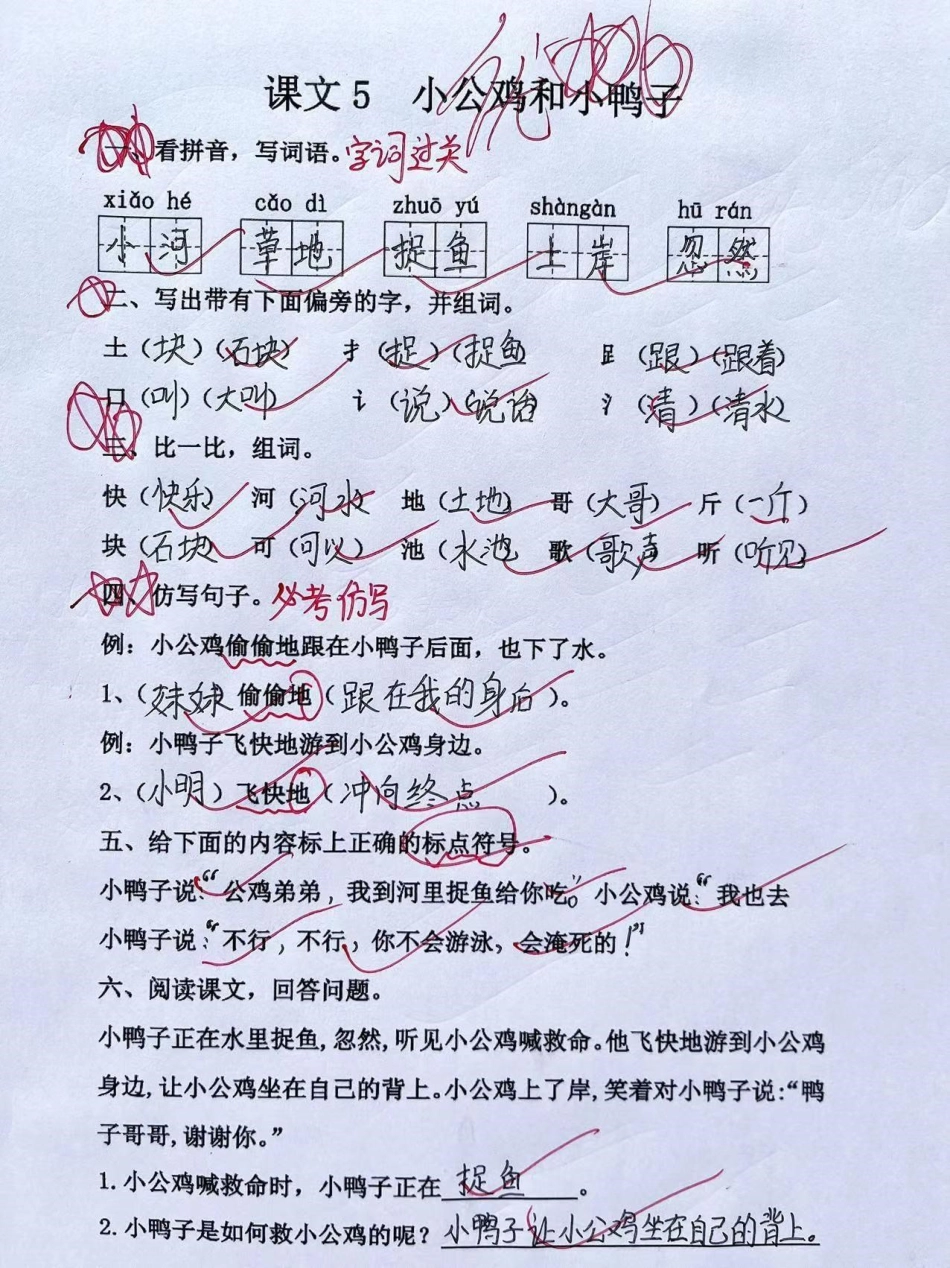 课文5 小公鸡和小鸭子
一、看拼音，写词语。字词过关
xiǎo hé cǎo dì zhuō yú shàngàn hū rán
小河 草地 捉鱼 上岸 忽然
二、写出带有下面偏旁的字，并组词。
土（块）（石块） 扌（捉）（捉鱼） 𧾷（跟）（跟着）
口（叫）（大叫） 讠（说）（说话） 氵（清）（清水）
三、比一比，组词。
快（快乐） 河（河水） 地（土地） 哥（大哥） 斤（一斤）
块（石块） 可（可以） 池（水池） 歌（歌声） 听（听见）
四、仿写句子。必考仿写
例：小公鸡偷偷地跟在小鸭子后面，也下了水。
1、（妹妹）偷偷地（跟在我的身后）。
例：小鸭子飞快地游到小公鸡身边。
2、（小明）飞快地（冲向终点）。
五、给下面的内容标上正确的标点符号。
小鸭子说：“公鸡弟弟，我到河里捉鱼给你吃”。小公鸡说：“我也去
小鸭子说：“不行，不行，你不会游泳，会淹死的！”
六、阅读课文，回答问题。
小鸭子正在水里捉鱼，忽然，听见小公鸡喊救命。他飞快地游到小公鸡
身边，让小公鸡坐在自己的背上。小公鸡上了岸，笑着对小鸭子说：“鸭
子哥哥，谢谢你。”
1.小公鸡喊救命时，小鸭子正在捉鱼。
2.小鸭子是如何救小公鸡的呢？小鸭子让小公鸡坐在自己的背上。